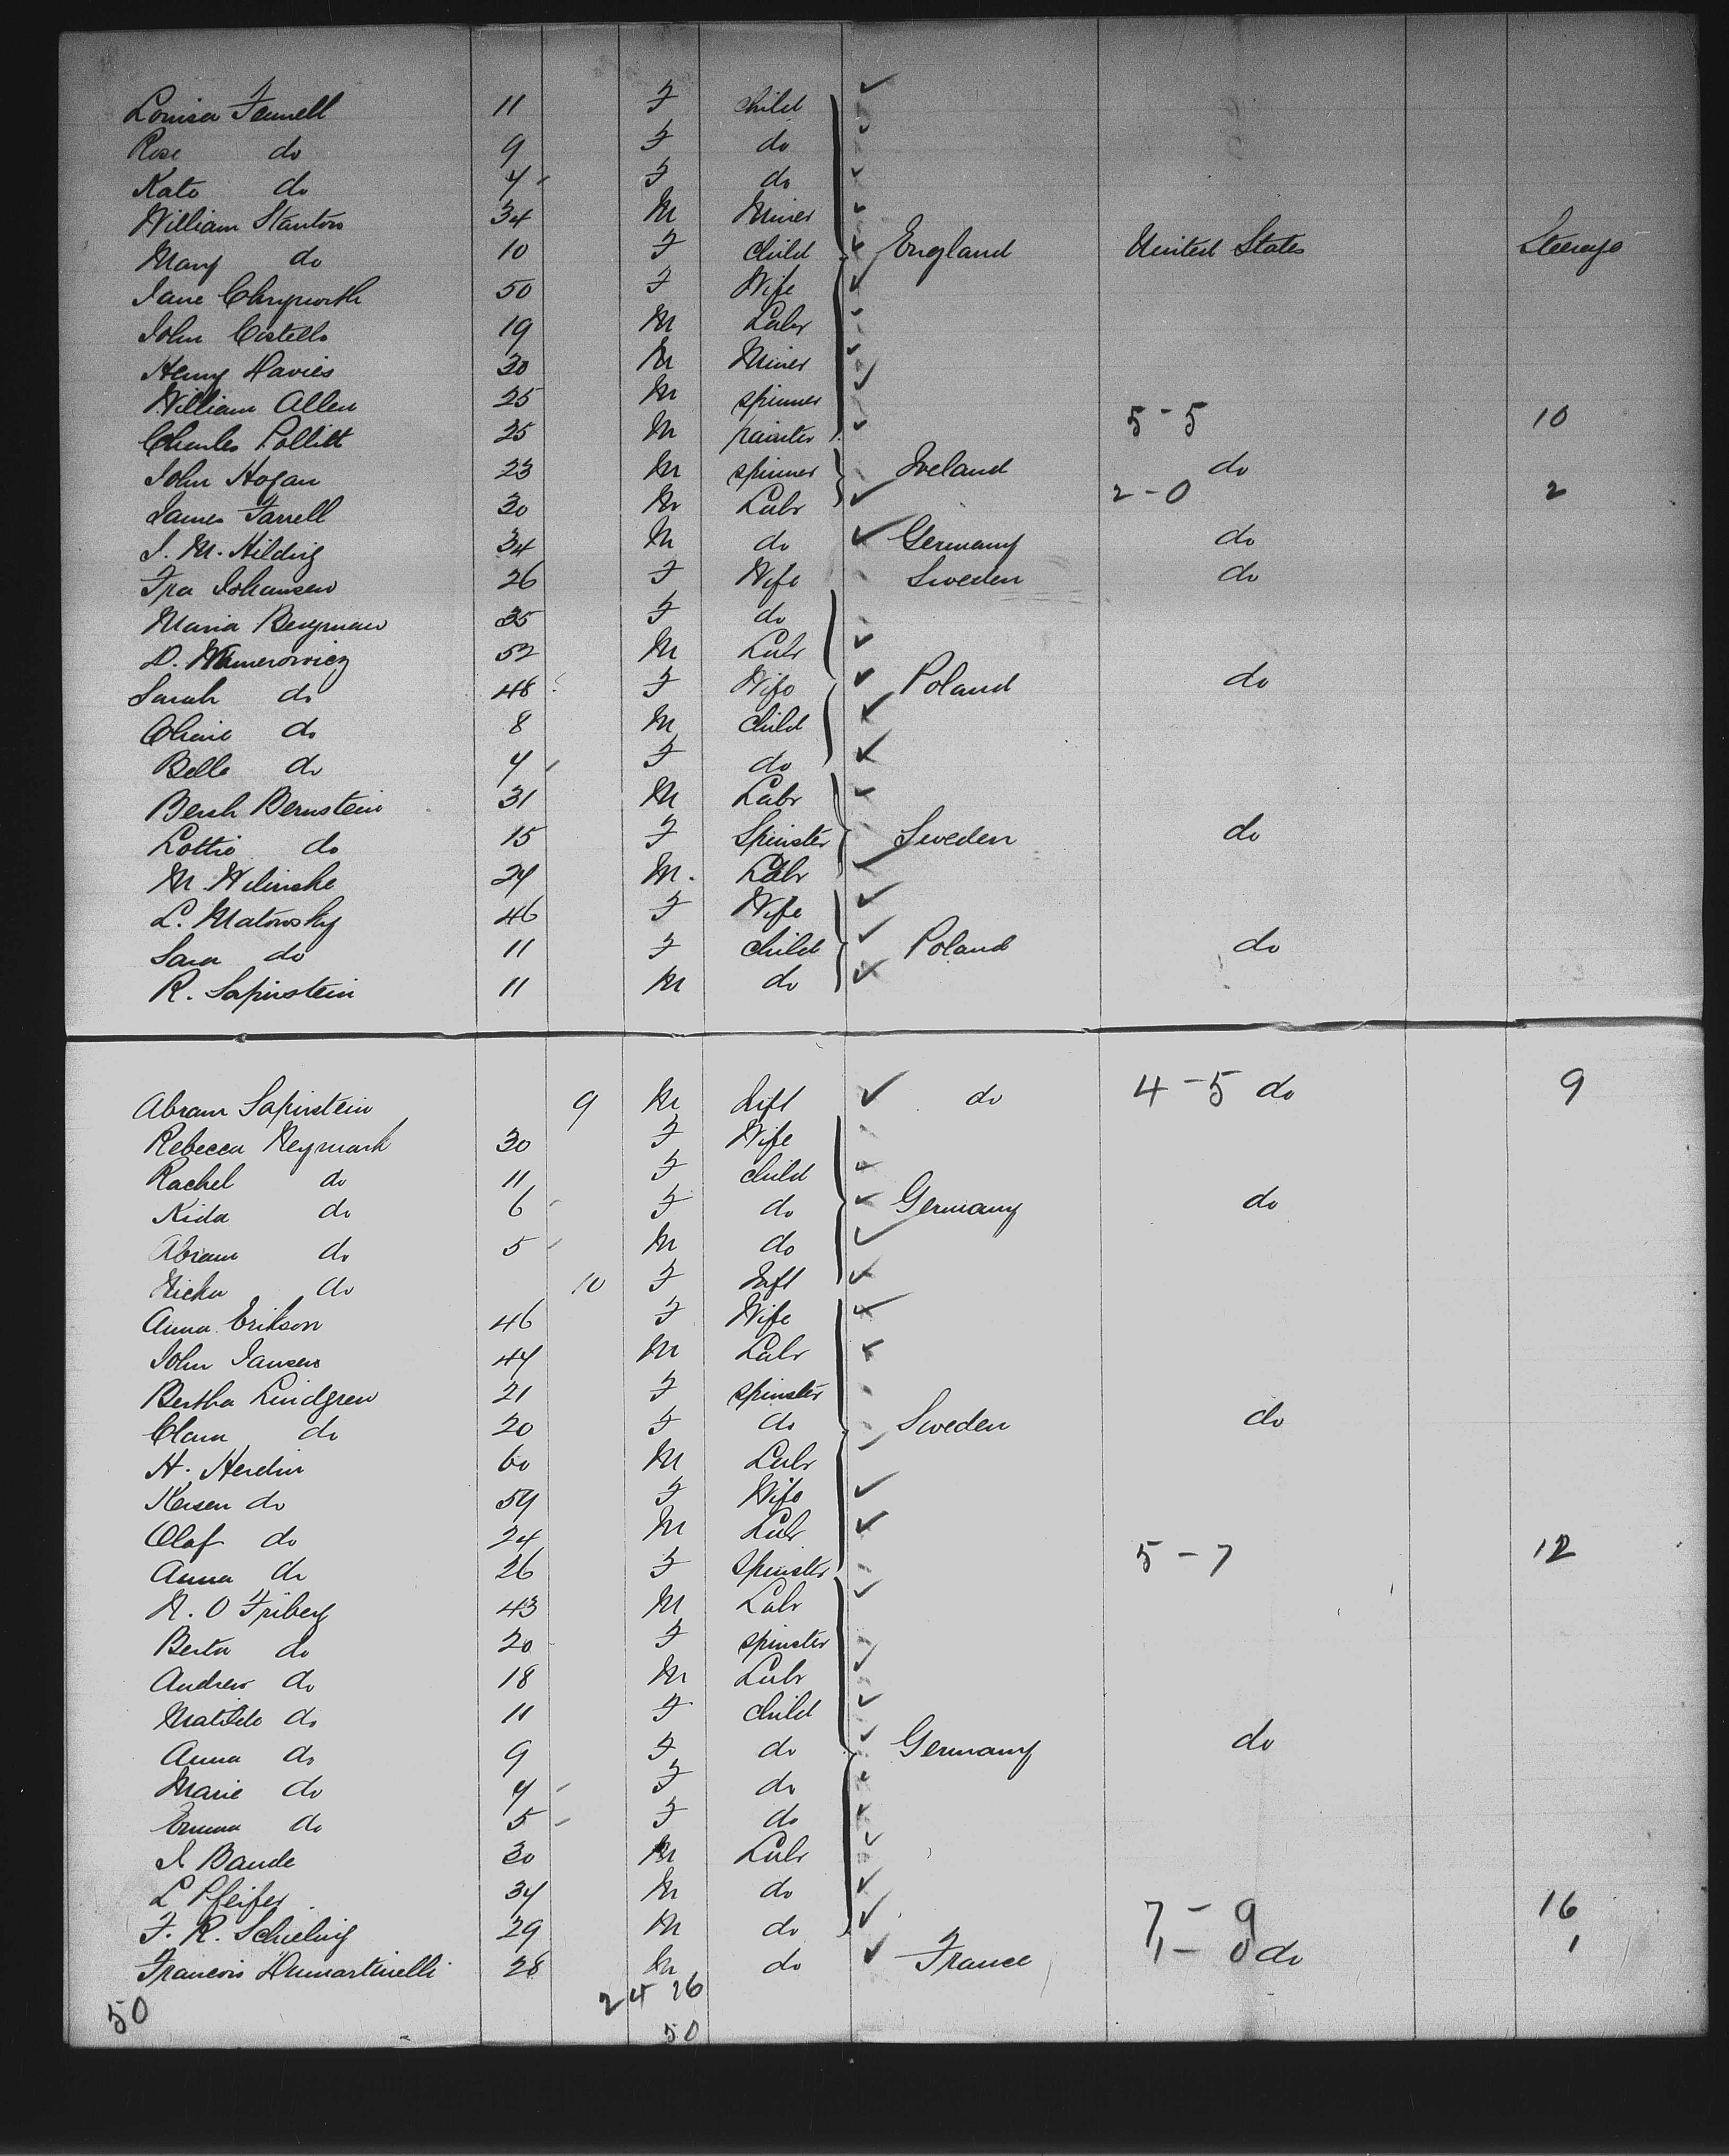 Louisa Fennell 11 F child
Rose do 9 F do
Kate do 4 F do
William Stanton 34 M Miner
Mary do 10 F child England United States Steerage
Jane 50 F Wife
John Costello 19 M Labr
Henry Davies 30 M Miner
William Allen 25 M spinner
Charles Pollitt 25 M painter 5-5 10
John Hogan 23 M spinner Ireland do
James Farrell 30 M Labr 2-0 2
J. M. Hilding 34 M do Germany do
Fra Johansen 26 F Wife Sweden do
Maria Bergman 35 F do
D. 52 M Labr
Sarah do 48 F Wife Poland do
do 8 M child
Belle do 4 F do
Bersh Bernstein 31 M Labr
Lottie do 15 F Spinster Sweden do
M. Wilinske 24 M. Labr
L. Matowsky 46 F Wife
Sara do 11 F child Poland do
R. Sapirstein 11 M do
Abram Sapirstein 9 M Inft do 4-5 do 9
Rebecca Neymark 30 F Wife
Rachel do 11 F child
Kida do 6 F do Germany do
Abram do 5 M do
do 10 F Inft
Anna Erikson 46 F Wife
John Jansen 44 M Labr
Bertha Lindgren 21 F spinster
Clara do 20 F do Sweden do
H. Herdin 60 M Labr
Kersen do 54 F Wife
Olaf do 24 M Labr
Anna do 26 F Spinster 5-7 12
N. O Friberg 43 M Labr
Berta do 20 F spinster
Andrew do 18 M Labr
Matilde do 11 F child
Anna do 9 F do Germany do
Marie do 4 F do
Emma do 5 F do
J Bande 30 M Labr
L Pfeifer 34 M do
F. R. Schieling 29 M do 7-9 16
Francois Dumartinelli 28 M do France 1-0 do 1
50 24 26
50